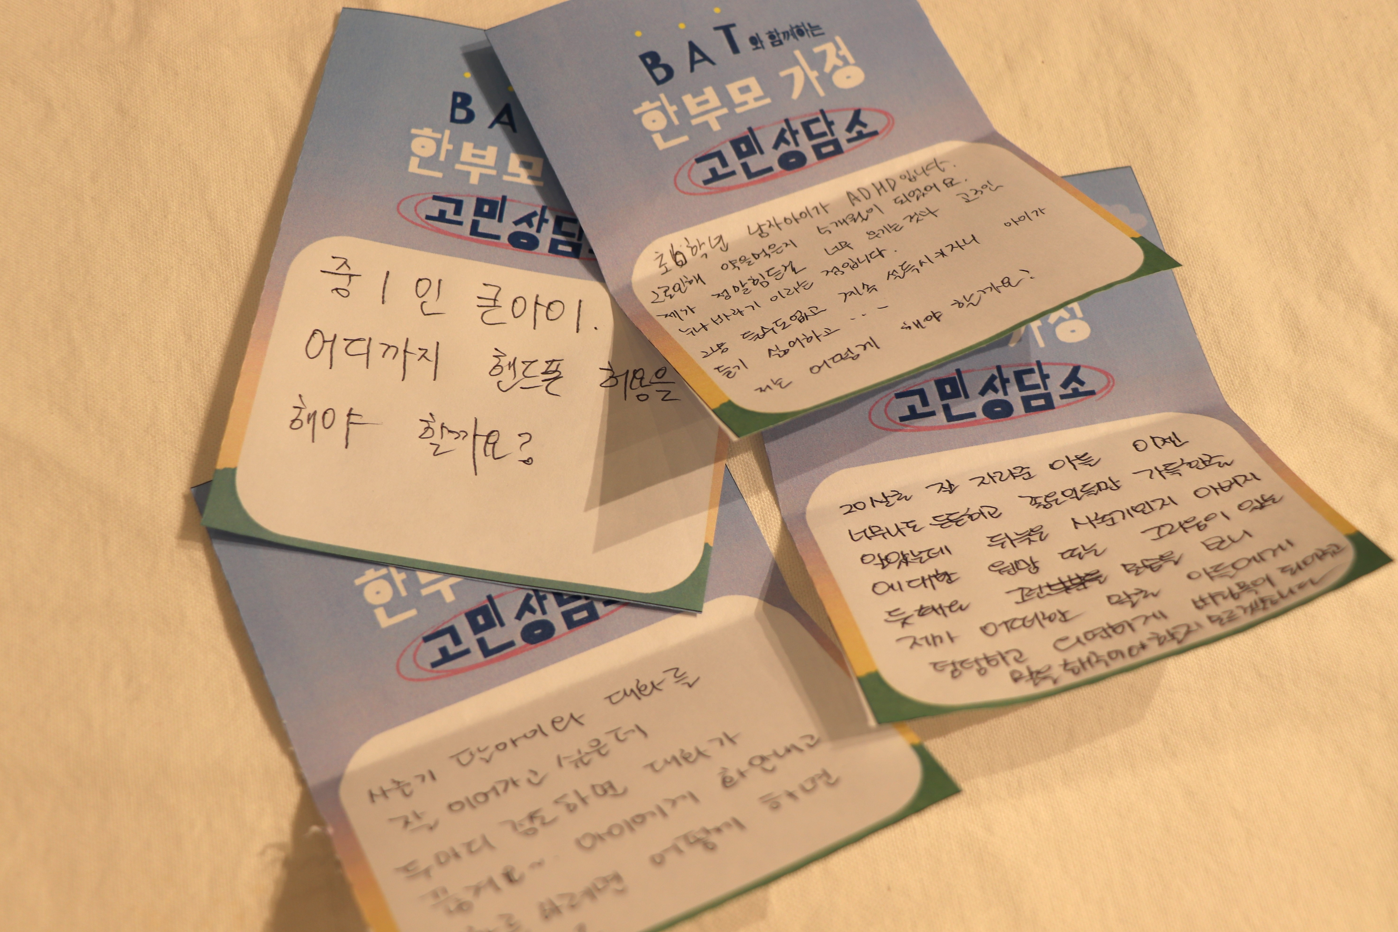 BAT와 함께하는
한부모 가정
고민상담소
초1학년 남자아이가 ADHD입니다.
그로인해 약을먹은지 4개월이 되었어요.
제가 정말힘든건 너무 우기는것과
누나 바라기 이라는 점입니다.
들을수도없고 계속 설득시키자니 아이가
듣기 싫어하고 ...
저는 어떻게 해야 할까요?
BA
한부모
고민상담
중1인 큰아이.
어디까지 핸드폰 허용을
해야 할까요?
가정
고민상담소
20살로 잘 자라준 아들 이젠
너무나도 든든하고 좋은일들만 가득한줄
알았는데 뒤늦은 사춘기인지 아버지
에대한 원망 또는 그리움이 있는
듯해요 말씀을 보니
제가 어떠한 말로 아들에게
당당하고
말을 해줘야 할지 모르겠습니다
한부
고민상담
사춘기 딸아이와 대화를
잘 이어가고 싶은데
두마디 정도하면 대화가
끊겨요~ 아이에게 화안내고
어떻게 하면